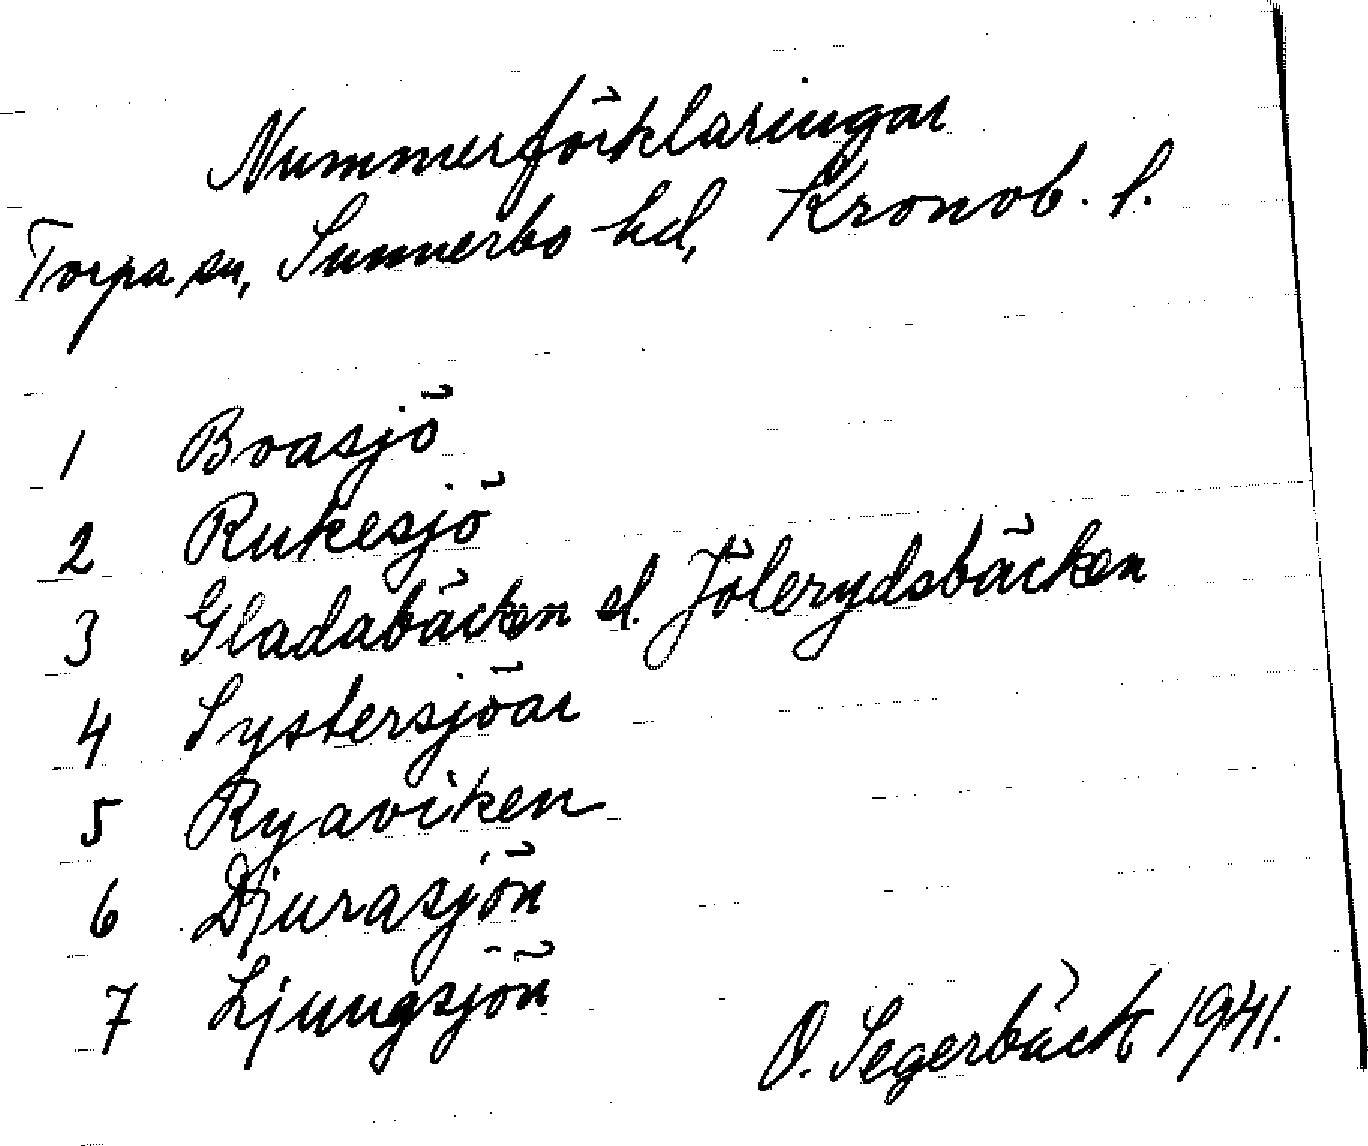 Nummerförklaringar
Torpa sn, Sunnerbo hd, Kronob. l.
1 Boasjö
2 Rukesjö
3 Gladabäcken el. Jölerydsbäcken
4 Systersjöar
5 Ryaviken
6 Djurasjön
7 Ljungsjön
O. Segerbäck 1941.